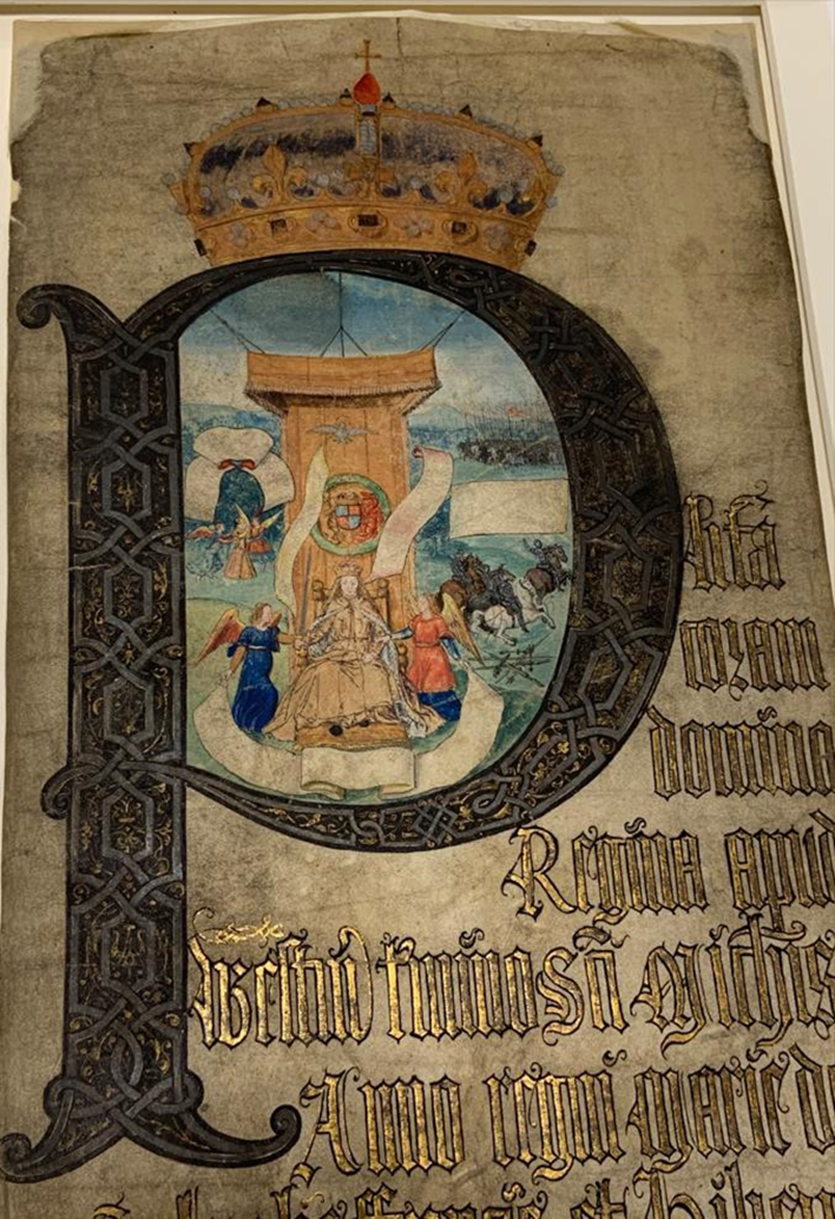 Plita
coram
domina
Regina apud
Westm termino Sci Michis
Anno regni Marie
ffrancie et